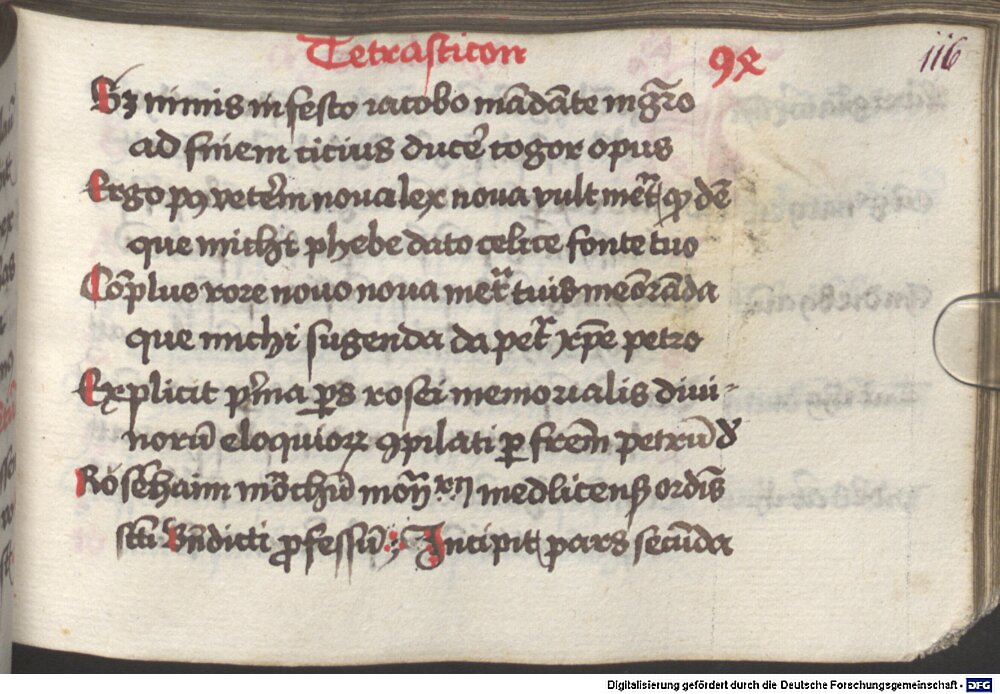 Tetrasticon 9x 116
Sz nimis infesto iacobo mādāte mgr̄o
ad finem cicius ducēr cogor opus
Ergo pꝰ veterēm noua lex noua vult met
que michi phebe dato celice fonte tuo
Cōplue rore nouo noua met tuis meōrāda
que michi sugenda da pet xpe petro
Explicit pima ꝑs rosei memorialis diui-
norū eloquiorꝝ ꝯpilati ꝑ frēm petrū d
Rosēhaim mōchū mon medlicensꝭ ordīs
scti bn̄dicti ꝓfessū Incipit pars secūda
Digitalisierung gefördert durch die Deutsche Forschungsgemeinschaft - DFG